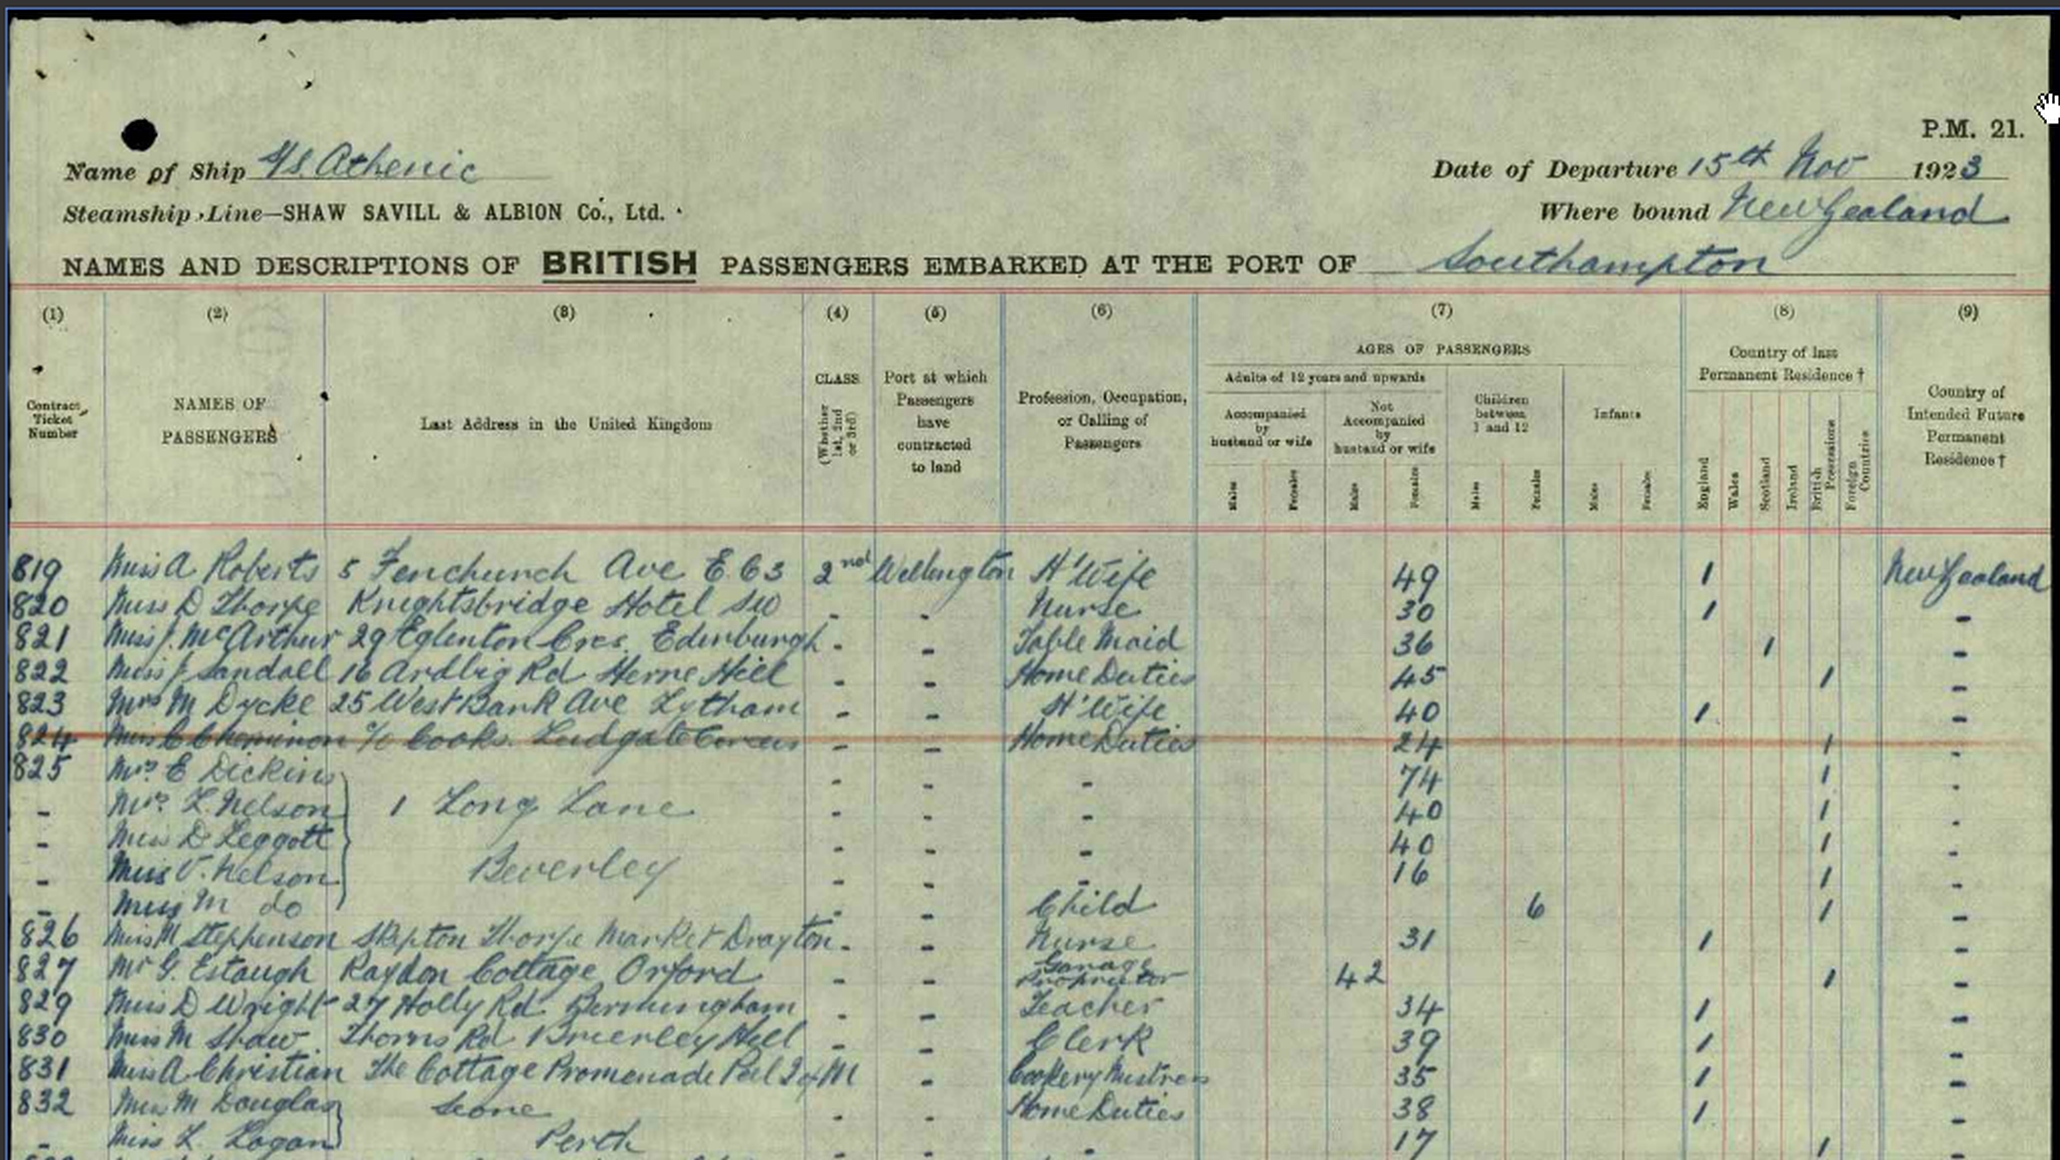 P.M. 21.
Name of Ship S/S. Athenic Date of Departure 15th Nov 1923
Steamship Line—SHAW SAVILL & ALBION Co., Ltd. Where bound New Zealand
NAMES AND DESCRIPTIONS OF BRITISH PASSENGERS EMBARKED AT THE PORT OF Southampton
(1) (2) (3) (4) (5) (6) (7) (8) (9)
Contract Ticket Number
NAMES OF PASSENGERS
Last Address in the United Kingdom
CLASS (Whether 1st, 2nd or 3rd)
Port at which Passengers have contracted to land
Profession, Occupation, or Calling of Passengers
AGES OF PASSENGERS
Adults of 12 years and upwards
Accompanied by husband or wife
Not Accompanied by husband or wife
Children between 1 and 12
Infants
Males Females Males Females Males Females Males Females
Country of last Permanent Residence †
England Wales Scotland Ireland British Possessions Foreign Countries
Country of Intended Future Permanent Residence †
819 Miss A Roberts 5 Fenchurch Ave E.C3 2nd Wellington H'Wife 49 1 New Zealand
820 Miss D Thorpe Knightsbridge Hotel SW - - Nurse 30 1 -
821 Miss J. McArthur 29 Eglenton Cres. Edinburgh - - Table Maid 36 1 -
822 Miss J Sandall 16 Ardbig Rd Herne Hill - - Home Duties 45 1 -
823 Mrs M Dycke 25 West Bank Ave Lytham - - H'Wife 40 1 -
824 Miss C c/o Cooks. Ludgate Circus - - Home Duties 24 1 -
825 Mrs E Dickins - - - 74 1 -
- Mrs L. Nelson 1 Long Lane - - - 40 1 -
- Miss D Leggott - - - 40 1 -
- Miss V. Nelson Beverley - - - 16 1 -
- Miss M do - - Child 6 1 -
826 Miss M Stephenson Skipton Thorpe Market Drayton - - Nurse 31 1 -
827 Mr G. Estaugh Raydon Cottage Orford - - Garage Proprietor 42 1 -
829 Miss D Wright 27 Holly Rd Birmingham - - Teacher 34 1 -
830 Miss M Shaw Thorns Rd Brierley Hill - - Clerk 39 1 -
831 Miss A Christian The Cottage Promenade Peel I of M - Cookery Mistress 35 1 -
832 Miss M Douglas Scone - - Home Duties 38 1 -
- Miss L. Logan Perth - - - 17 1 -